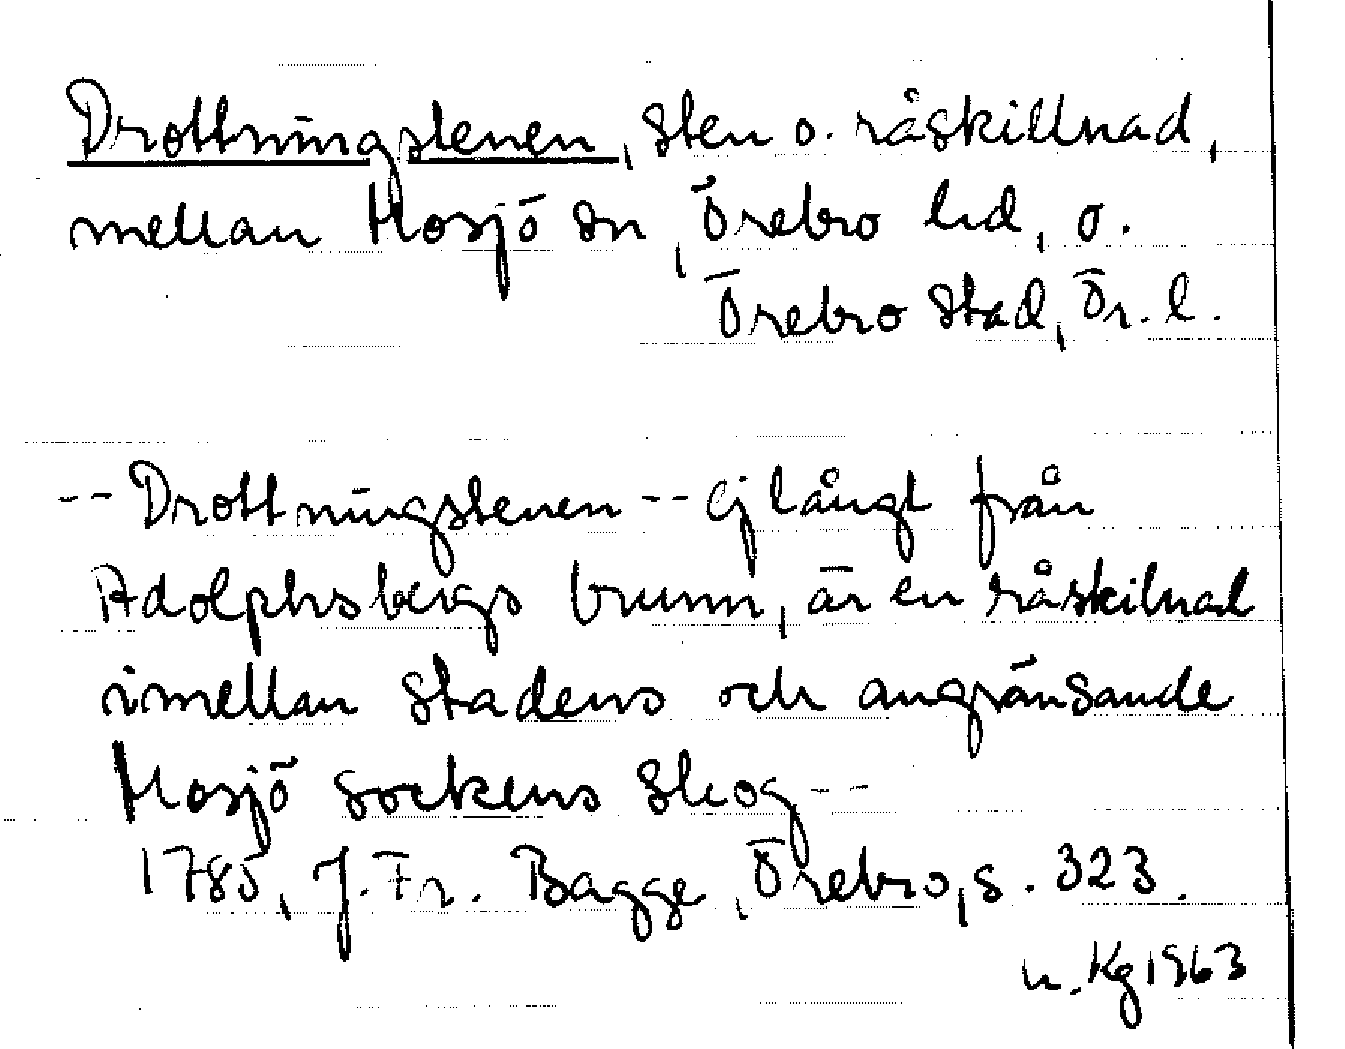 Drottningstenen, sten o. råskillnad,
mellan Mosjö sn, Örebro hd, o.
Örebro stad, Ör. l.
-- Drottningstenen -- ej långt från
Adolphsbergs brunn, är en råskilnad
imellan stadens och angränsande
Mosjö sockens skog --
1785, J. Fr. Bagge, Örebro, s. 323.
n. Kg 1963